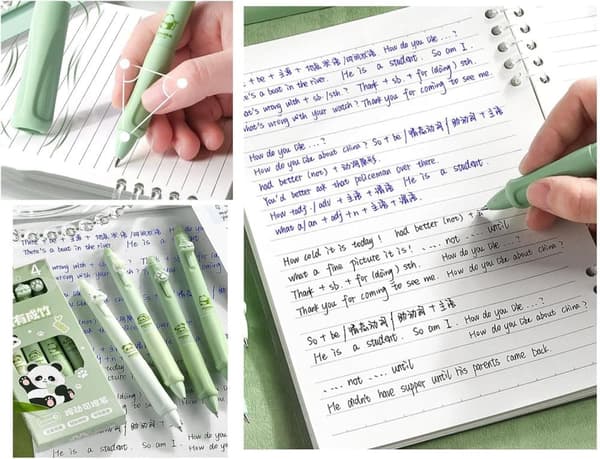 There + be + 主语 + 地点状语/时间状语
There's a boat in the river. He is a
wrong with + sb/sth? Thank + sb + for (doing)
wrong with your watch? Thank you for
4
有成竹
He is a student. So am I. How do you
+ be + 主语 + 地点状语/时间状语 How do you like ...?
's a boat in the river. He is a student. So am I.
at's wrong with + sb/sth? Thank + sb + for (doing) sth.
hat's wrong with your watch? Thank you for coming to see me.
How do you like ...?
How do you like about China? So + be / 情态动词 / 助动词 + 主语
had better (not) + 动词原形.
You'd better ask that policeman over there.
How +adj / adv + 主语 + 谓语 He is a student.
what a/an + adj + n + 主语 + 谓语.
How cold it is today! had better (not) +
what a fine picture it is! .... not .... until
Thank + sb + for (doing) sth. How do you like ...?
Thank you for coming to see me. How do you like about China?
So + be / 情态动词 / 助动词 + 主语
He is a student. So am I. How do you like ...?
How do you like about China?
.... not .... until
He didn't have supper until his parents came back.